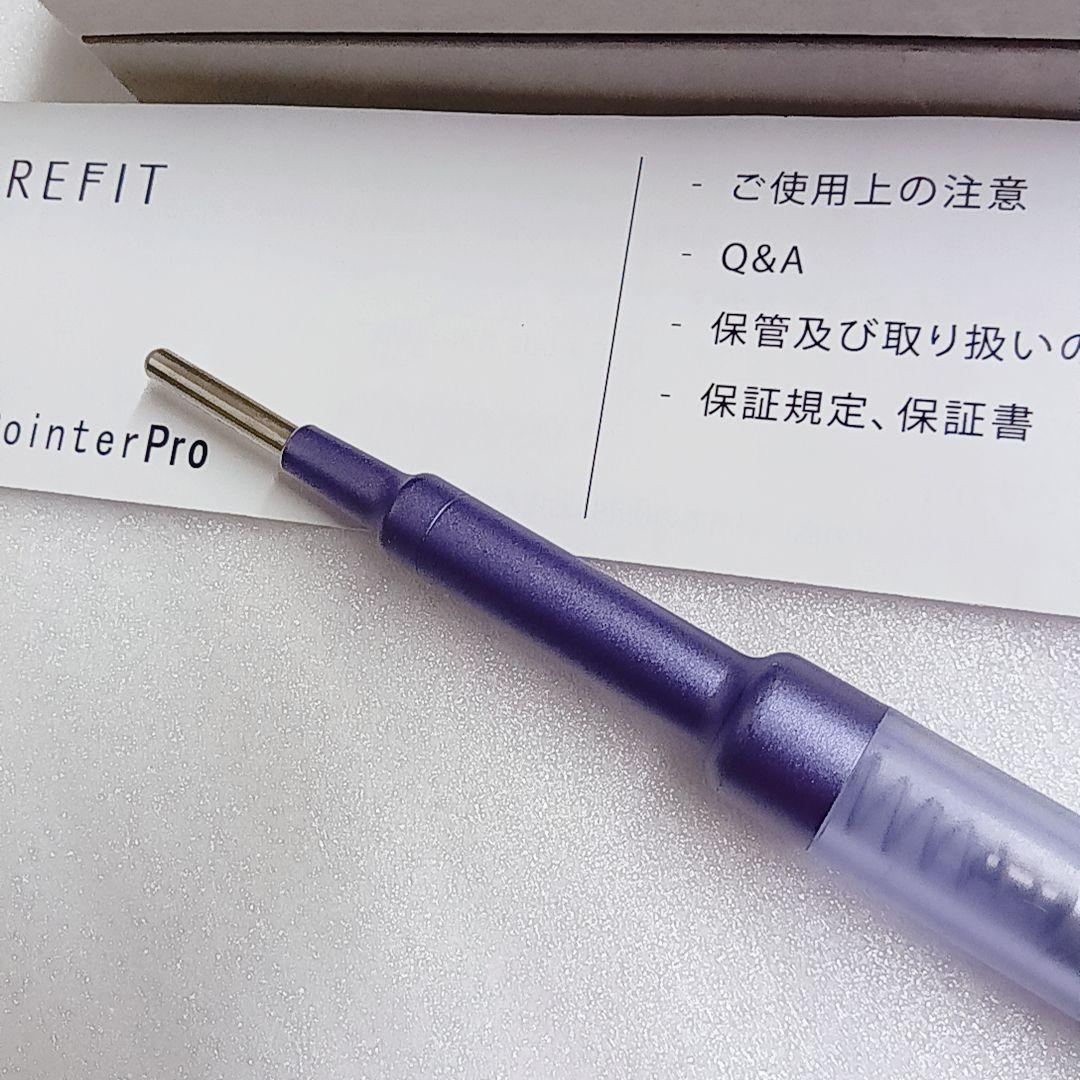 REFIT
ointerPro
- ご使用上の注意
- Q&A
- 保管及び取り扱いの
- 保証規定、保証書